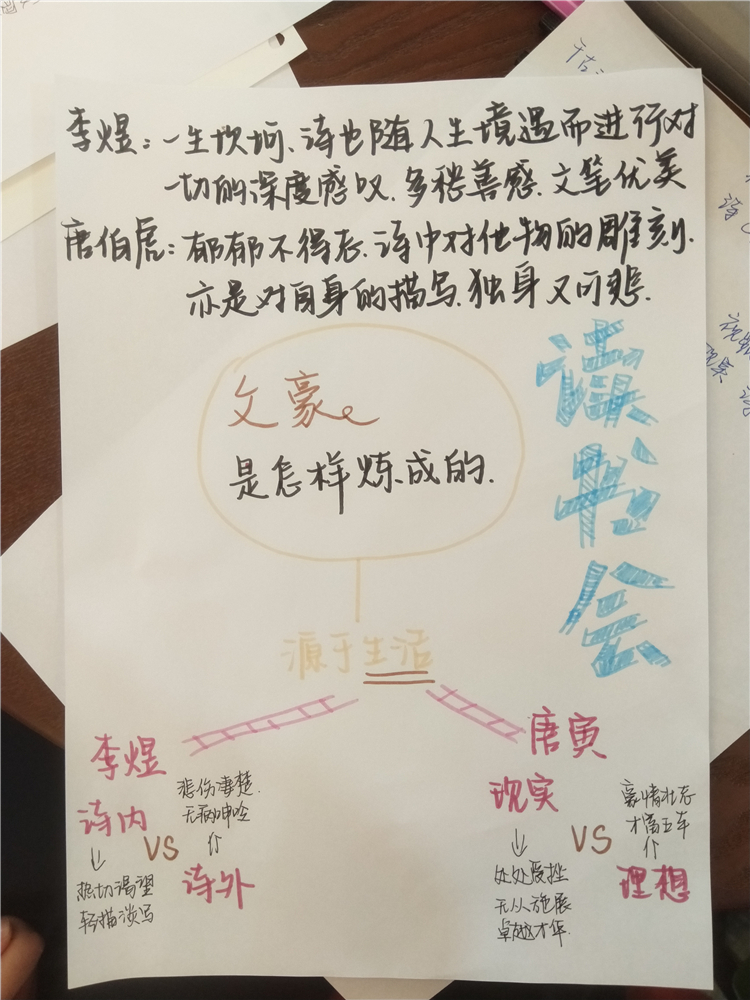 李煜：一生坎坷、诗也随人生境遇而进行对
一切的深度感叹.多愁善感.文笔优美
唐伯虎：郁郁不得志.诗中对他物的雕刻.
亦是对自身的描写.独身又可悲.
文豪
是怎样炼成的.
读书会
源于生活
李煜
诗内
VS
诗外
悲伤凄楚.
无病呻吟
热切渴望
轻描淡写
唐寅
现实
VS
理想
豪情壮志
才富五车
处处受挫
无从施展
卓越才华.